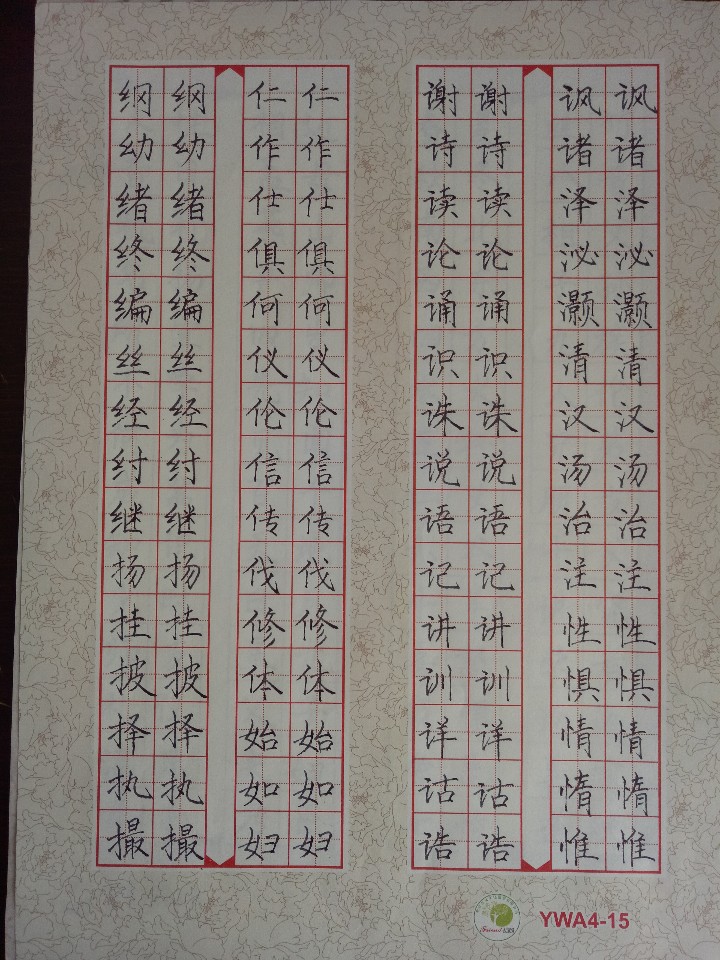 纲幼绪终编丝经纣继扬挂披择执撮
纲幼绪终编丝经纣继扬挂披择执撮
仁作仕俱何仪伦信传伐修体始如妇
仁作仕俱何仪伦信传伐修体始如妇
谢诗读论诵识诛说语记讲训详诂诰
谢诗读论诵识诛说语记讲训详诂诰
讽诸泽泌灏清汉汤治注性惧情惰惟
讽诸泽泌灏清汉汤治注性惧情惰惟
YWA4-15